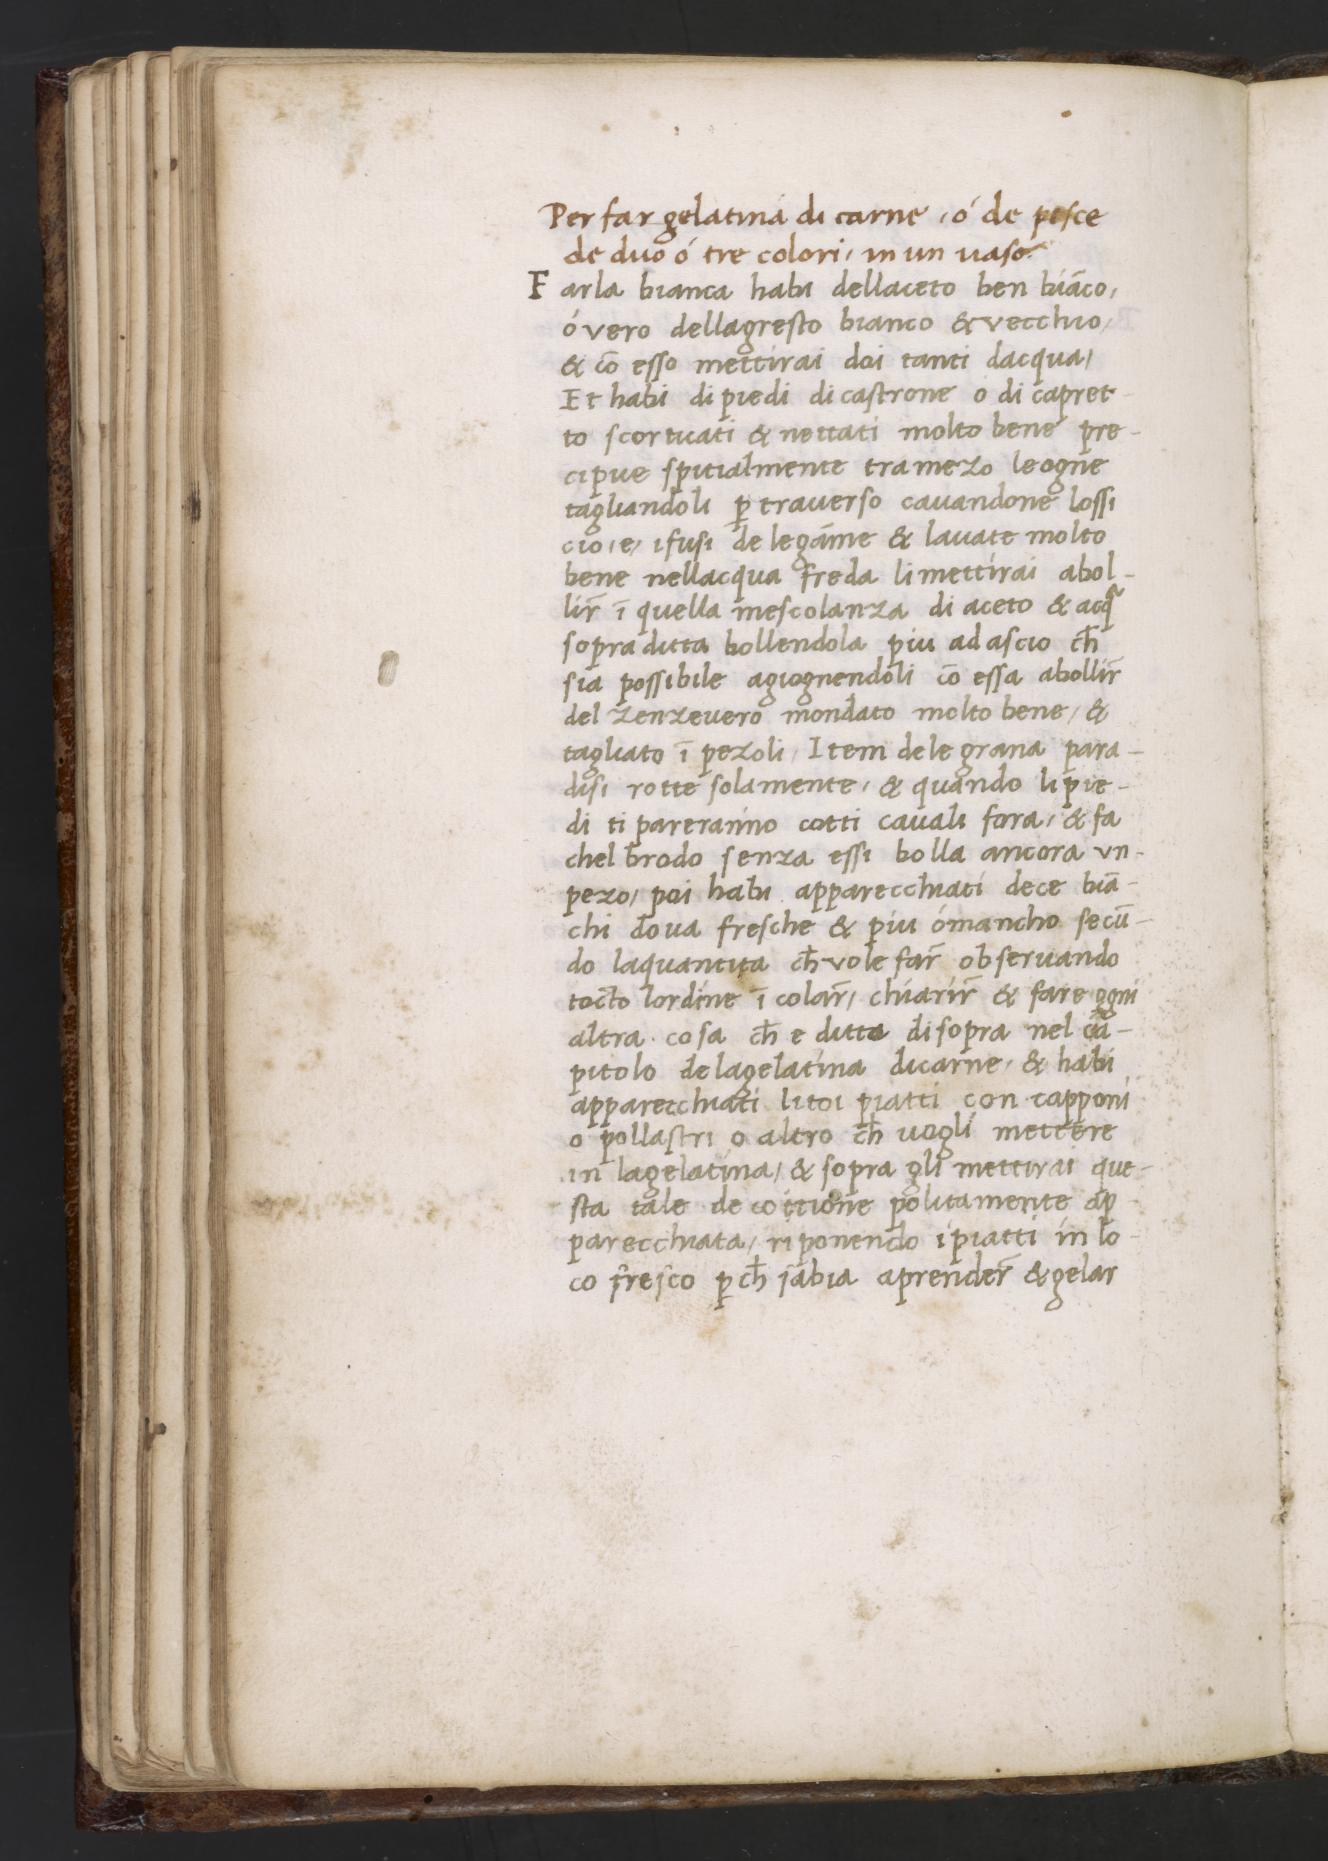 Per far gelatina di carne, ó de pesce
de duo ó tre colori, in un vaso.
Farla bianca habi dellaceto ben biāco,
ó vero dellagresto bianco & vecchio,
& cō esso mettirai doi tanti dacqua,
Et habi di piedi di castrone o di capret
to scorticati & nettati molto bene pre-
cipue spitialmente tramezo leogne
tagliandoli ꝑ traverso cavandone lossi
cio, e, ifusi de legáme & lavate molto
bene nellacqua freda li mettirai abol-
lir̄ ī quella mescolanza di aceto & acq̄
sopra ditta bollendola piu ad ascio ch̄
sia possibile agiognendoli cō essa abollir̄
del zenzevero mondato molto bene, &
tagliato ī pezoli, Item dele grana para-
disi rotte solamente, & quando li pie-
di ti pareranno cotti cavali fora, & fa
chel brodo senza essi bolla ancora vn-
pezo, poi habi apparecchiati dece biā-
chi dova fresche & piu ómancho secū-
do laquantita ch̄ vole far̄ observando
tocto lordine ī colar̄, chiarir̄ & fare ogni
altra cosa ch̄ e ditta disopra nel ca-
pitolo delagelatina dicarne, & habi
apparecchiati litoi piatti con capponi
o pollastri o altro ch̄ vogli mettere
in lagelatina, & sopra gli mettirai que-
sta tale decottione politamente ap-
parecchiata, riponendo ipiatti in lo-
co fresco ꝑch̄ sabia aprender̄ & gelar